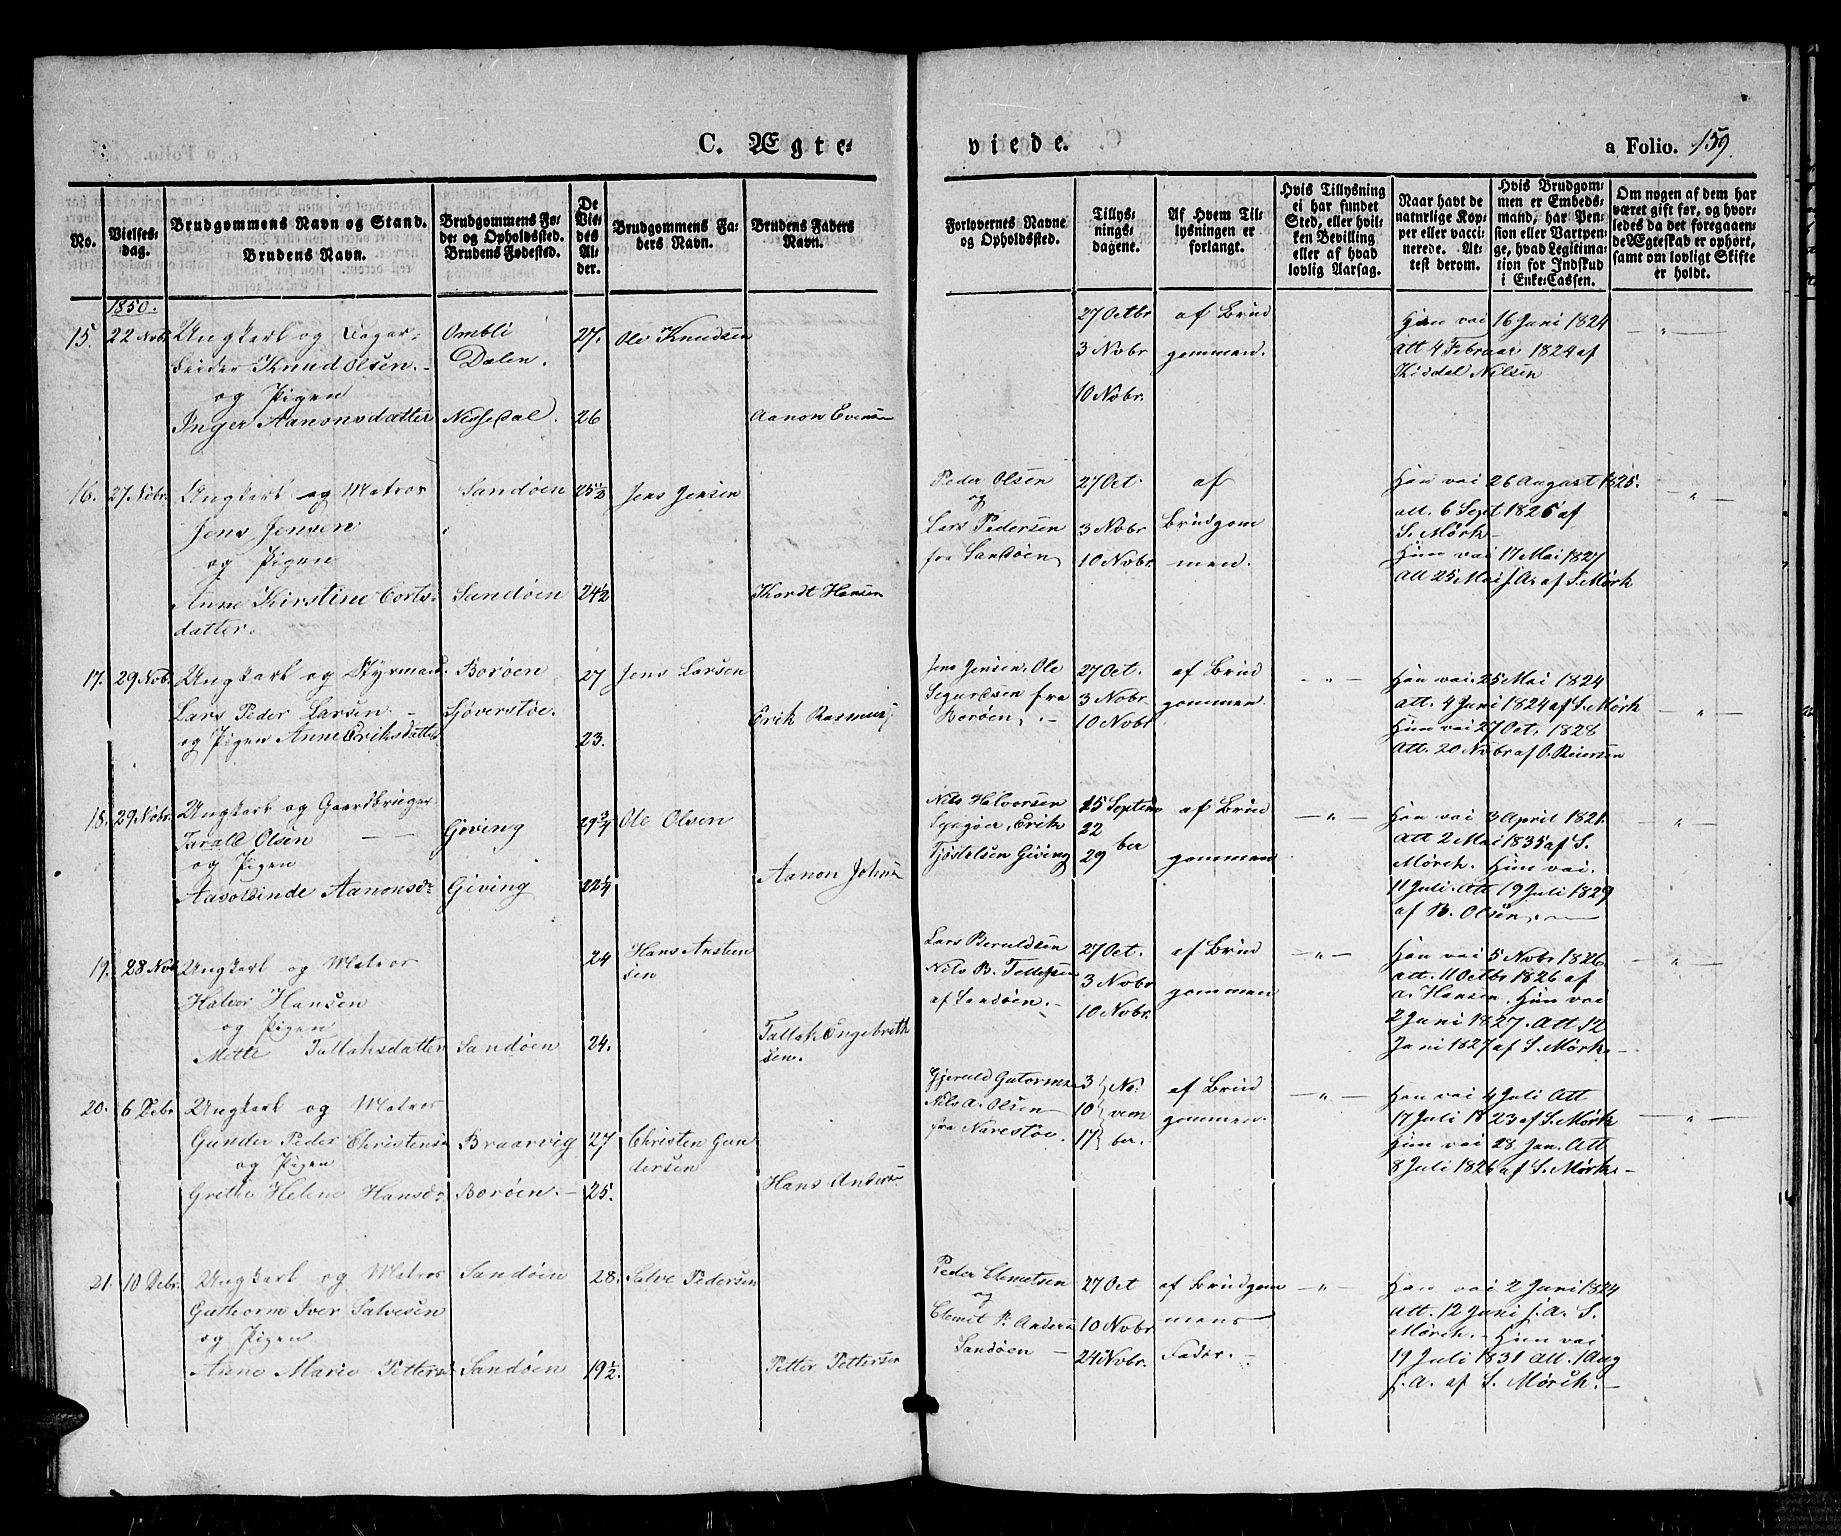 C. Ægte=
viede.
a Folio. 159.
No.
Vielses=
dag.
Brudgommens Navn og Stand.
Brudens Navn.
Brudgommens Fø=
de= og Opholdssted.
Brudens Fødested.
De
Vie=
des
Al=
der.
Brudgommens Fa=
ders Navn.
Brudens Faders
Navn.
Forlovernes Navne
og Opholdssted.
Tillys=
nings=
dagene.
Af Hvem Til=
lysningen er
forlangt.
Hvis Tillysning
ei har fundet
Sted, eller hvil=
ken Bevilling
eller af hvad
lovlig Aarsag.
Naar havt de
naturlige Kop=
per eller vacci=
nerede. At=
test derom.
Hvis Brudgom=
men er Embeds=
mand, har Pen=
sion eller Vartpen=
ge, hvad Legitima=
tion for Indskud
i Enke=Cassen.
Om nogen af dem har
været gift før, og hvor=
ledes da det foregaaen=
de Ægteskab er ophørt,
samt om lovligt Skifte
er holdt.
1850.
15. 22 Nobr. Ungkarl og
Knud Olsen. -
og Pigen
Inger Aanonsdatter
Ombli
Dalen.
Nissedal.
27.
26
Ole Knudsen
Aanon Evens
27 Octbr
3 Nobr
10 Nobr.
af Brud
gommen.
Han vai 16 Juni 1824
Att 4 Februar 1824 af
Nilsen
16. 27 Nobr. Ungkarl og Matros
Jens Jensen
og Pigen
Anne Kirstine Corts=
datter.
Sandøen
Sandøen
25½
24½
Jens Jensen
Kordt Hansen
Peder Olsen
og
Lars Pedersen
fra Sandøen
27 Oct.
3 Nobr
10 Nobr.
af
Brudgom
men.
Han vai 26 August 1825.
att. 6 Sept. 1826 af
S. Mørk -
Hun vai 17 Mai 1827
Att 25 Mai s. A. af S. Mørk
17. 29 Nob. Ungkarl og Styrmand
Lars Peder Larsen -
og Pigen Anne Eriksdatter
Borøen
Sjøverstøe.
27
23.
Jens Larsen
Erik Rasmus
Jens Jensen, Ole
Segurdsen fra
Borøen, -
27 Oct.
3 Nobr
10 Nobr
af Brud
gommen
Han vai 25 Mai 1824
att. 4 Juni 1824 af S. Mørk
Hun vai 27 Oct. 1828
Att. 20 Nobr af O. Reiersen
18. 29 Nobr. Ungkarl og Gaardbruger
Tarald Olsen
og Pigen
Aasolinde Aanonsd:
Gjeving
Giving
29¾
22¼
Ole Olsen
Aanon Johns
Nils Halvorsen
Lyngøer, Erik
Tjøstelsen Giving
15 Septem
22
29 ber
af Brud
gommen
Han vai 3 April 1821.
Att 2 Mai 1835 af S.
Mørch. Hun vai.
11 Juli. Att 19 Juli 1829
af B. Olsen. -
19. 28 Nob Ungkarl og Matros
Halvor Hansen
og Pigen
Mette Tallaksdatter
Sandøen
24
24.
Hans Austen
sen
Tallak Engebreth
sen.
Lars Beruldsen
Nils B. Tellefsen
af Sandøen. -
27 Oct.
3 Nobr
10 Nobr.
af Brud
gommen
Han vai 5 Nobr 1826.
att. 11 Octbr 1826 af
A. Hansen. Hun vai
2 Juni 1827. Att 12
Juni 1827 af S. Mørk. -
20. 6 Debr Ungkarl og Matros
Gunder Peder Christens
og Pigen
Grethe Helene Hansd:
Braarvig
Borøen. -
27
25.
Christen Gun
dersen
Hans Anders
Gjerald Gutorms
Nils A. Olsen
fra Narestøe
3 No:
10 vem
17 ber.
af Brud
gommen.
Han vai 4 Juli Att
17 Juli 1823 af S. Mørk
Hun vai 28 Jan. Att
8 Juli 1826 af S. Mørk -
21. 10 Debr. Ungkarl og Matros
Guthorm Iver Salvesen
og Pigen
Anne Marie Petters:
Sandøen
Sandøen
28.
19½.
Salve Pedersen
Petter Pettersen
Peder Clemetsen
og
Clemet P. Anders
Sandøen -
27 Oct
10 Nobr
24 Nobr.
af Brudgom
mens
Fader. -
Han vai 2 Juni 1824
att. 12 Juni s. A. S.
Mørch. - Hun vai
19 Juli 1831 Att. 1 Aug
s. A. af S. Mørch. -